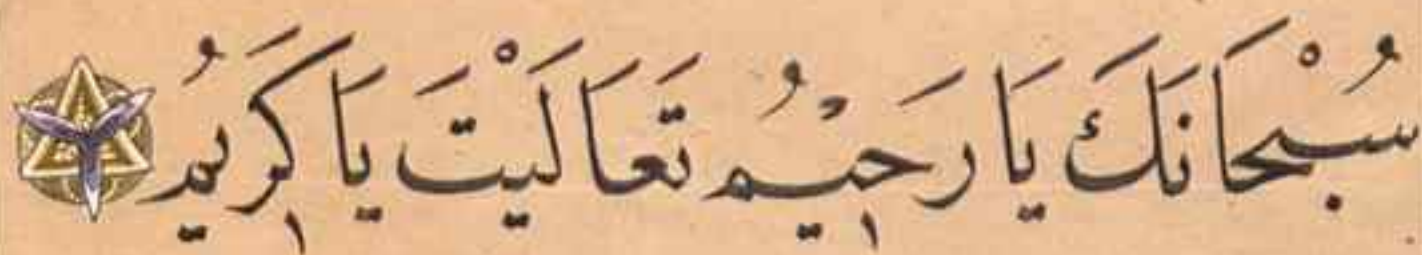 سُبْحَانَكَ يَا رَحِيْمُ تَعَالَيْتَ يَا كَرِيْمُ